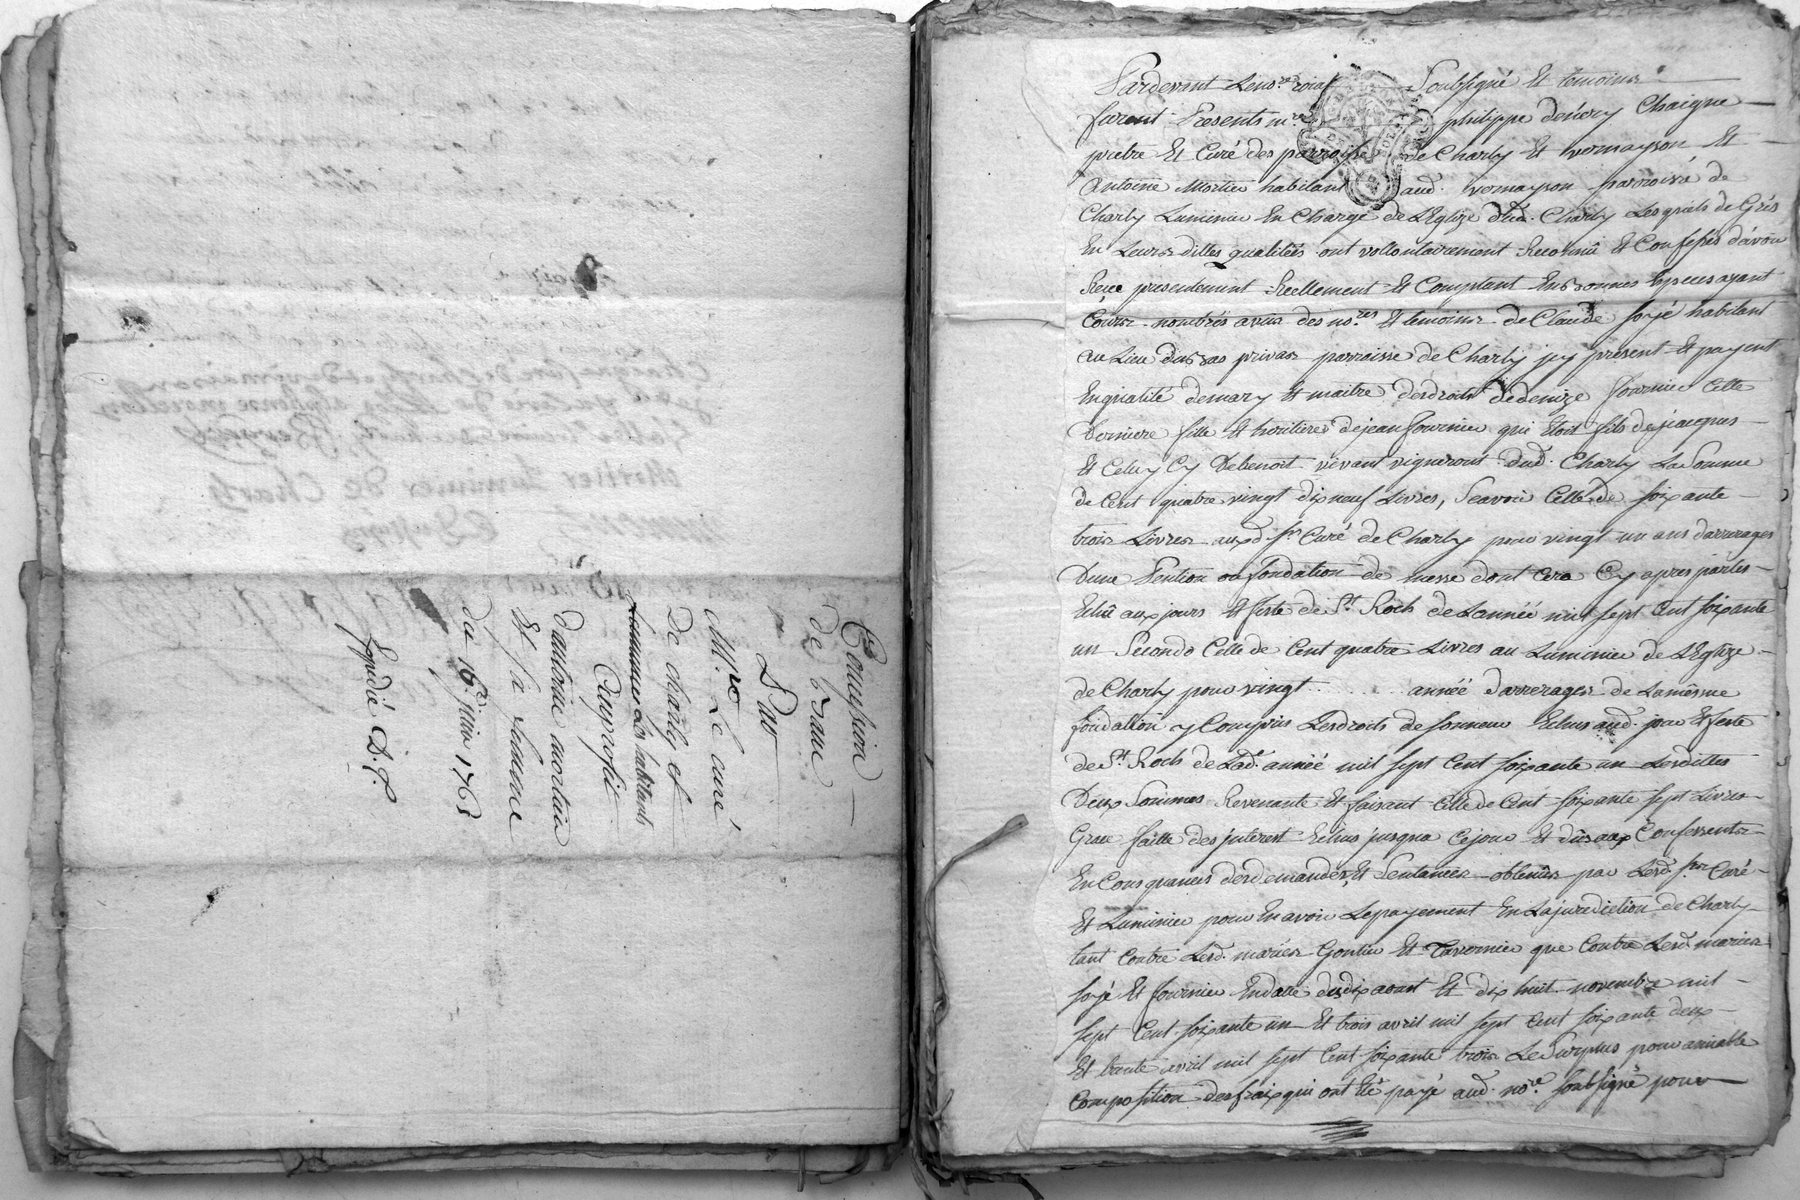 Concession
de
Par
M.re Le curé
De charly et
Les habitants
Au profit
d'antoine mortier
Et sa femme
du 16 juin 1763
Expedié
Pardevant Le no.re roial Soubsigné Et temoins
furent Presents m.re philippe demery Chaigne
pretre Et Curé des parroisses de Charly Et vernayson Et
Antoine Mortier habitant aud. vernayson parroisse de
Charly Luminier En Charge de L'Eglize dud. Charly Lesquels de Grés
En Leurs dittes qualités ont vollontairement Reconnû Et Confessés d'avoir
Reçu presentement Reellement Et Comptant En bonnes Especes ayant
Cours nombrés a vüe des no.res Et temoins de Claude foyé habitant
au Lieu du bas privas parroisse de Charly jcy present Et payent
En qualité de mary Et maitre des droits de denize fournier Cette
Derniere fille Et heritiere de jean fournier qui Etoit fils de jacques
Et Celuy Cy De benoit vivant vigneront dud. Charly La Somme
de Cent quatre vingt dix neuf Livres, Scavoir Celle de soixante
trois Livres aud. s.r Curé de Charly pour vingt un ans d'arrerages
Dune Pention ou fondation de messe dont sera Cy apres parlés
Echû aux jours Et feste de S.t Roch de Lannéé mil sept Cent soixante
un Secondo Celle de Cent quatre Livres au Luminier de L'Eglize
de Charly pour vingt ..... année d'arrerages de La mesme
fondation y Compris Les droits de sonneur Echus aud. jour Et feste
de S.t Roch de Lad. année mil sept Cent soixante un Lesdittes
Deux Sommes Revenante Et faisant Celle de Cent soixante sept Livres
Grace faitte des jnterest Echus jusqua Ce jour Et dûs aux Confessents
En Consquances des demandes Et Sentances obtenûes par Lesd. s.rs Curé
Et Luminier pour En avoir Le payement En La jurediction de Charly
tant Contre Lesd. mariés Gontier Et Tavernier que Contre Lesd. mariés
foyé Et fournier En datte des dix aoust Et dix huit novembre mil
sept Cent soixante un Et trois avril mil sept Cent soixante deux
Et trente avril mil sept Cent soixante trois Le Surplus pour amiable
Composition des fraix qui ont Eté payé aud. no.re Soubsigné pour